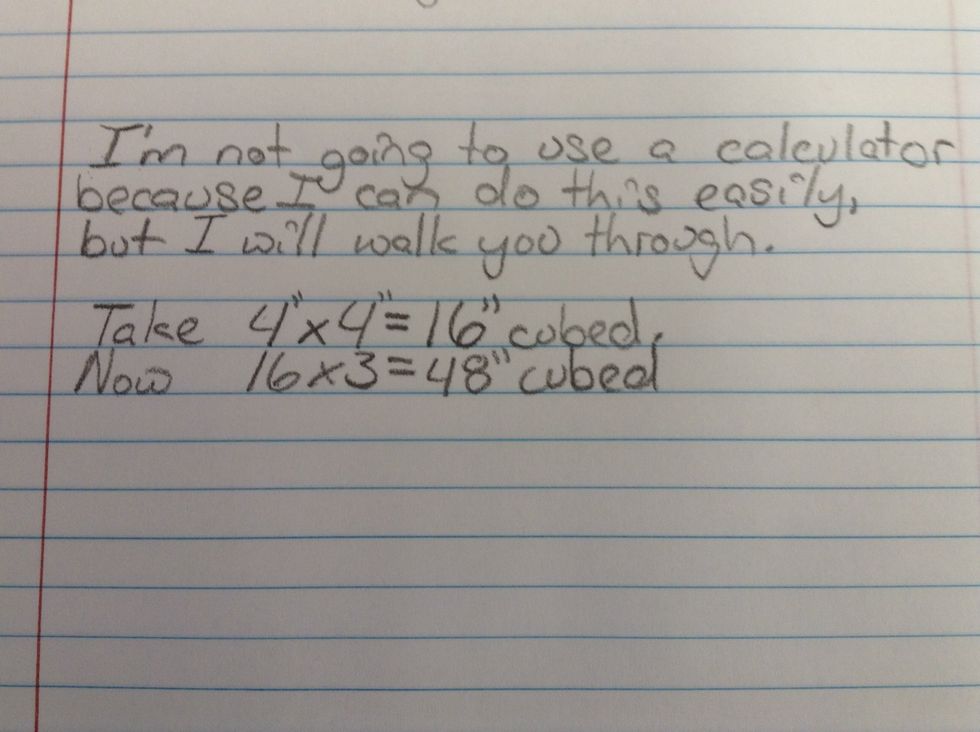 I'm not going to use a calculator
because I can do this easily,
but I will walk you through.
Take 4"x4"=16" cubed.
Now 16x3=48" cubed